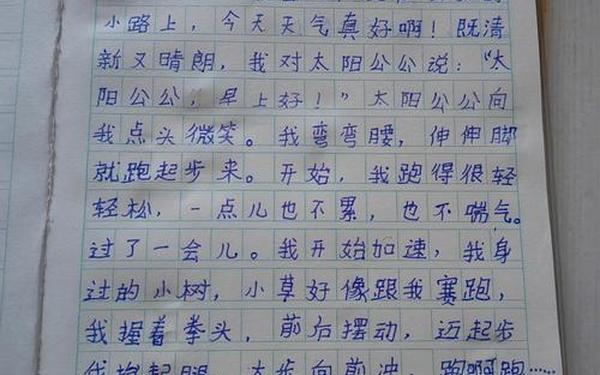 小路上，今天天气真好啊！既清
新又晴朗，我对太阳公公说：“太
阳公公，早上好！”太阳公公向
我点头微笑。我弯弯腰，伸伸脚
就跑起步来。开始，我跑得很轻
轻松，一点儿也不累，也不喘气。
过了一会儿。我开始加速，我身
过的小树，小草好像跟我赛跑，
我握着拳头，前后摆动，迈起步
我抬起腿，大步向前冲，跑啊跑……